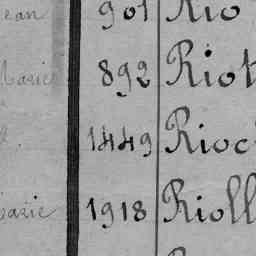 ean 901 Rio
Marie 892 Riot
1449 Rioc
Marie 1918 Rioll